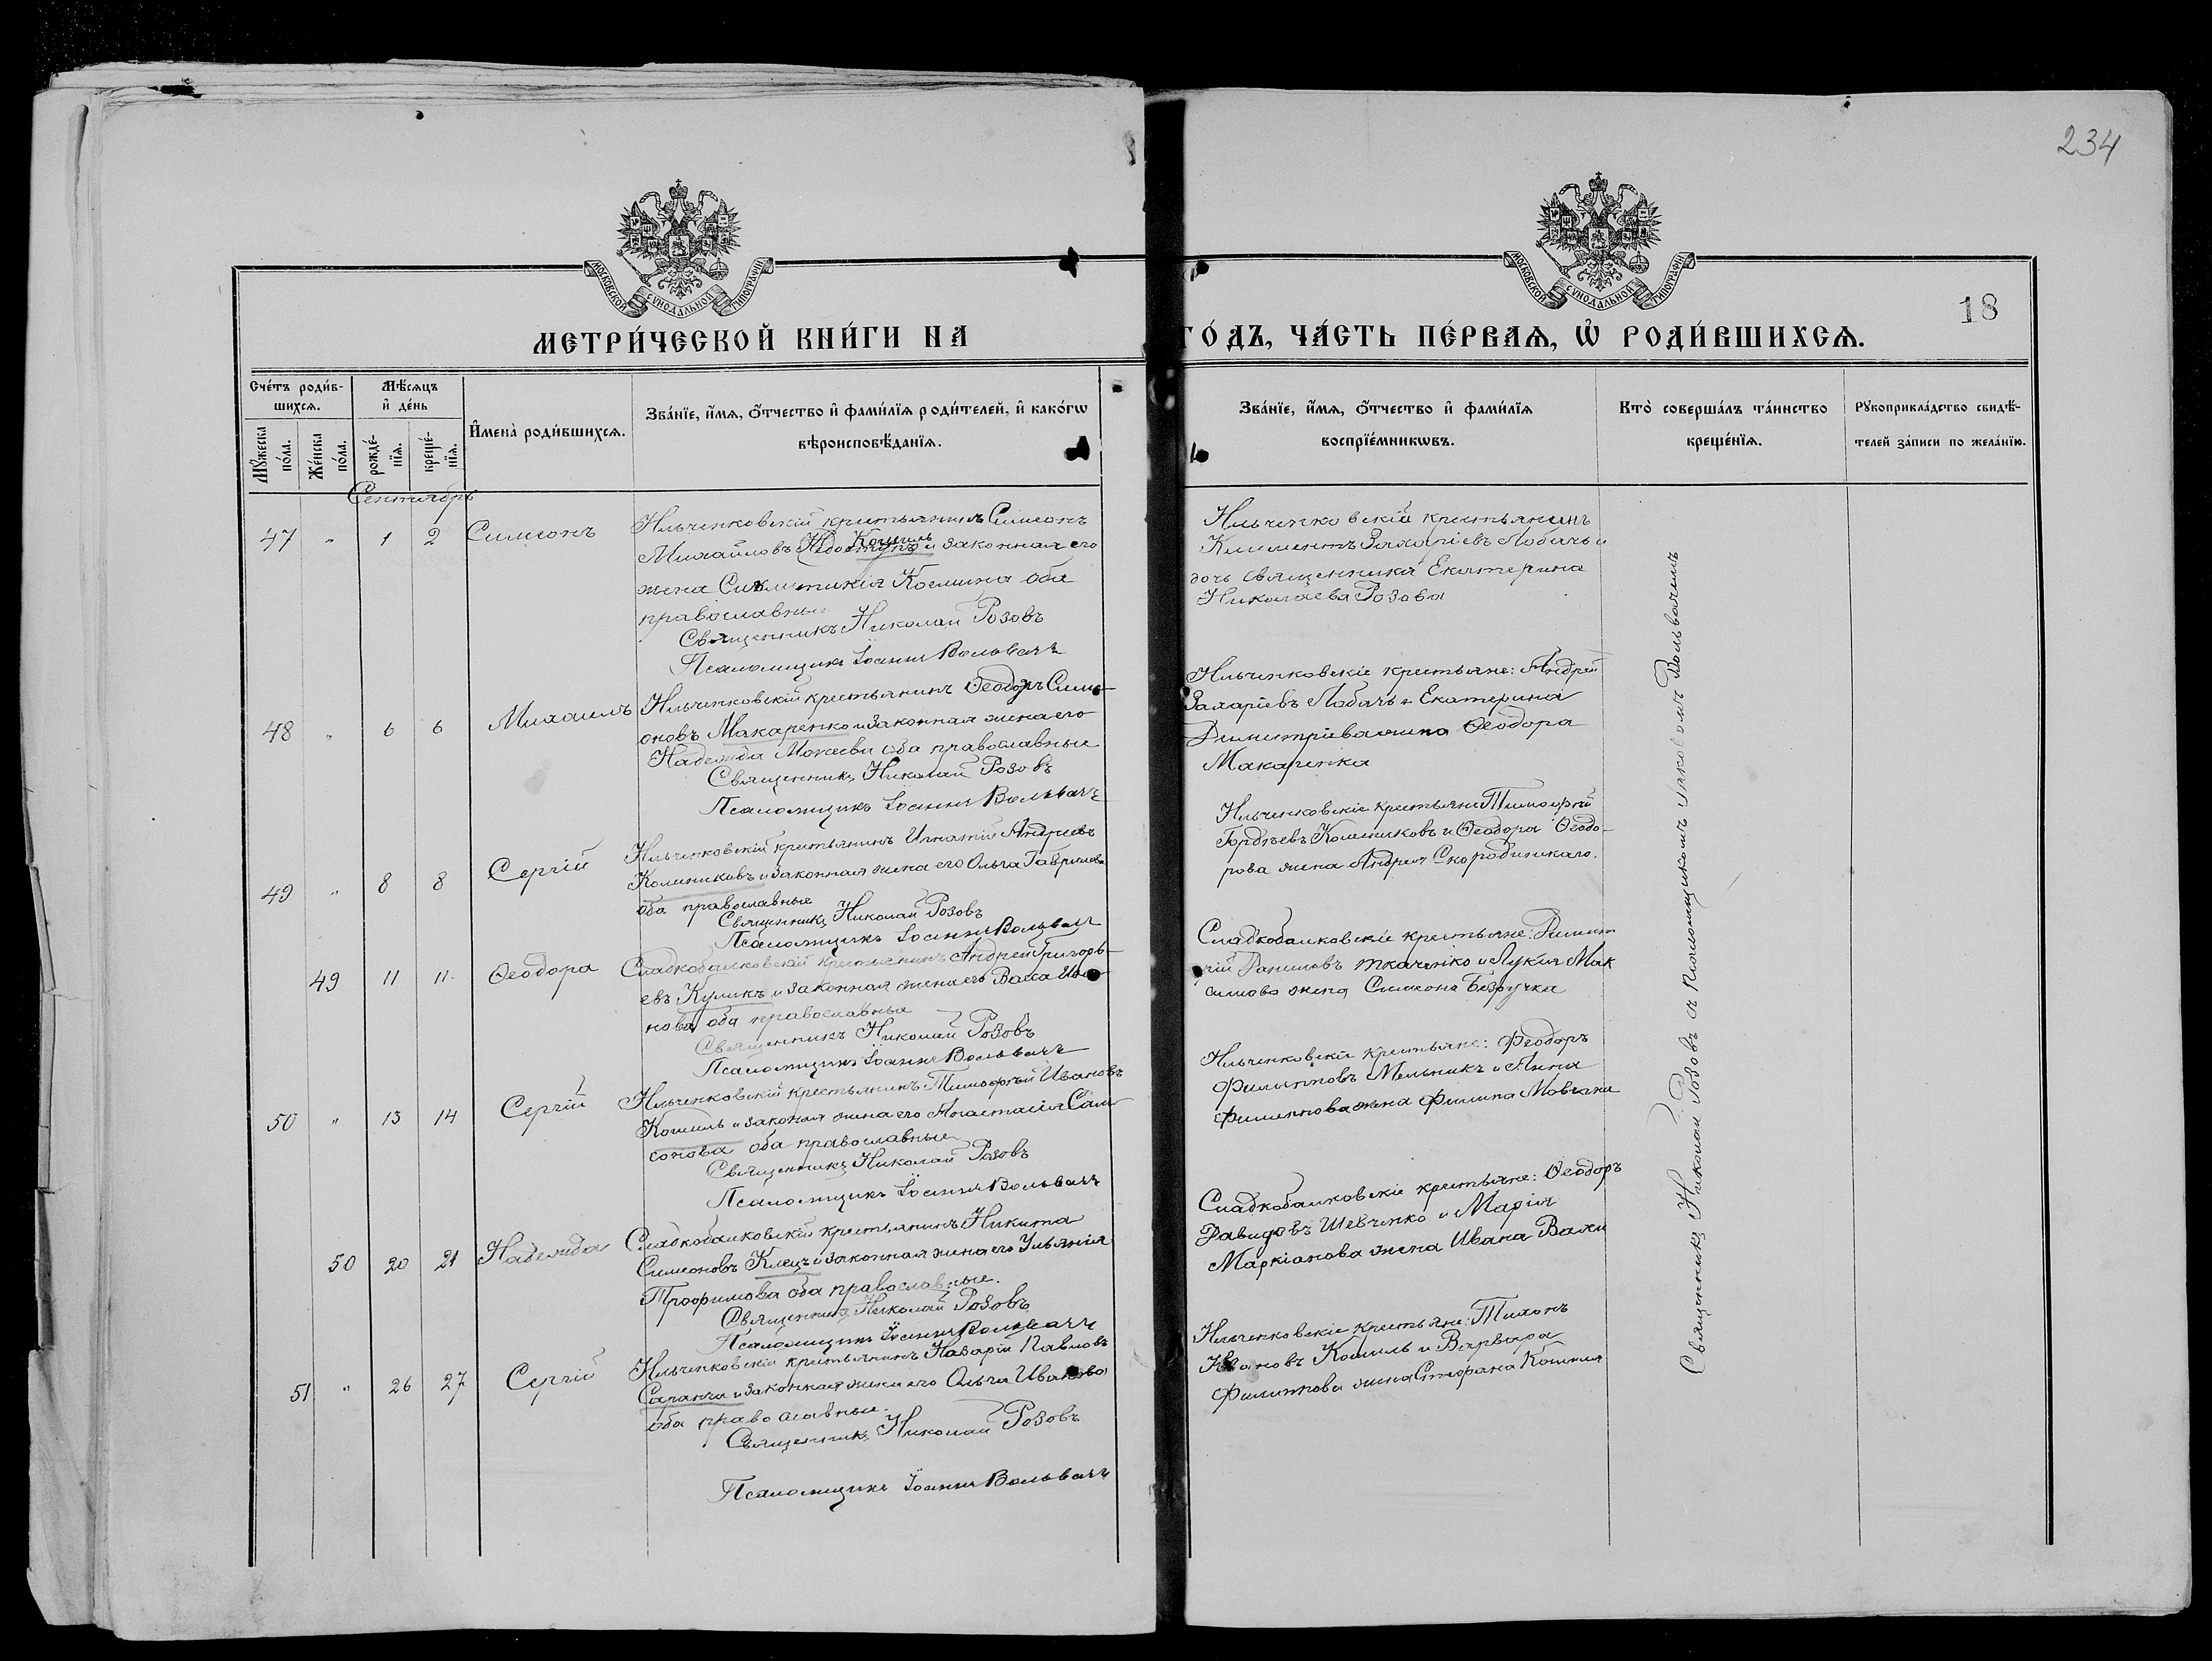 234
МОСКОВСКОЙ СѴНОДАЛЬНОЙ ТИПОГРАФІИ
МОСКОВСКОЙ СѴНОДАЛЬНОЙ ТИПОГРАФІИ
18
МЕТРИ́ЧЕСКОЙ КНИ́ГИ НА ГО́ДЪ, ЧА́СТЬ ПЕ́РВАЯ, Ѡ҆ РОДИ́ВШИХСЯ.
Сче́тъ роди́в-
шихся.
Мѣ́сяцъ
и҆ де́нь
Мꙋ́жеска по́ла.
Же́нска по́ла.
рожде́-нїя.
креще́-нїя.
И҆мена̀ роди́вшихся.
Зва́нїе, и҆́мя, ѻ҆́тчество и҆ фами́лїя роди́телей, и҆ како́гѡ
вѣроисповѣ́данїя.
Зва́нїе, и҆́мя, ѻ҆́тчество и҆ фами́лїя
воспрїе́мникѡвъ.
Кто̀ соверша́лъ та́инство
креще́нїя.
Рꙋкоприкла́дство свидѣ́-
телей за́писи по жела́нїю.
Сентябрь
47 " 1 2 Симеонъ
Ильченковскій крестьянинъ Симеонъ
Кошиль
Михайловъ и законная его
жена Синклитикія Космина оба
православные
Священникъ Николай Розовъ
Псаломщикъ Іоаннъ Вольвачъ
Ильченковскій крестьянинъ
Климентъ Захаріевъ Лобачъ и
дочь священника Екатерина
Николаева Розова
48 " 6 6 Михаилъ
Ильченковскій крестьянинъ Ѳеодоръ Симе-
оновъ Макаренко и законная жена его
Надежда Мокеева оба православные
Священникъ Николай Розовъ
Псаломщикъ Іоаннъ Вольвачъ
Ильченковскіе крестьяне: Андрей
Захаріевъ Лобачъ и Екатерина
Димитріева жена Ѳеодора
Макаренка
49 " 8 8 Сергій
Ильченковскій крестьянинъ Игнатій Андреевъ
Колениковъ и законная жена его Ольга Гавриилова
оба православные
Священникъ Николай Розовъ
Псаломщикъ Іоаннъ Вольвачъ
Ильченковскіе крестьяне Тимофей
Гордѣевъ Колениковъ и Ѳеодора Ѳеодо-
рова жена Андрея Скородинскаго.
49 11 11 Ѳеодора
Сладкобалковскій крестьянинъ Андрей Григорь-
евъ Куликъ и законная жена его Васса
нова оба православные
Священникъ Николай Розовъ
Псаломщикъ Іоаннъ Вольвачъ
Сладкобалковскіе крестьяне: Димит
рій Даниловъ Ткаченко и Лукія Мак
симова жена Симеона Безручка
50 " 13 14 Сергій
Ильченковскій крестьянинъ Тимофей Ивановъ
Кошиль и законая жена его Анастасія Сам
сонова оба православные
Священникъ Николай Розовъ
Псаломщикъ Іоаннъ Вольвачъ
Ильченковскіе крестьяне: Феодоръ
Филипповъ Мельникъ и Анна
Филиппова жена Филипа Мовчана
50 20 21 Надежда
Сладкобалковскій крестьянинъ Никита
Симеоновъ Клецъ и законная жена его Ульянія
Трофимова оба православные.
Священникъ Николай Розовъ
Псаломщикъ Іоаннъ Вольвачъ
Сладкобалковскіе крестьяне: Ѳеодоръ
Давидовъ Шевченко и Марія
Маркіанова жена Ивана Важи
51 " 26 27 Сергій
Ильченковскій крестьянинъ Назарій Павловъ
Саранча и законная жена его Ольга Иванова
оба православные.
Священникъ Николай Розовъ
Псаломщикъ Іоаннъ Вольвачъ
Ильченковскіе крестьяне: Тихонъ
Ивановъ Кошиль и Варвара
Филиппова жена Стефана Кошиля
Священникъ Николай Розовъ съ псаломщикомъ Вольвачемъ